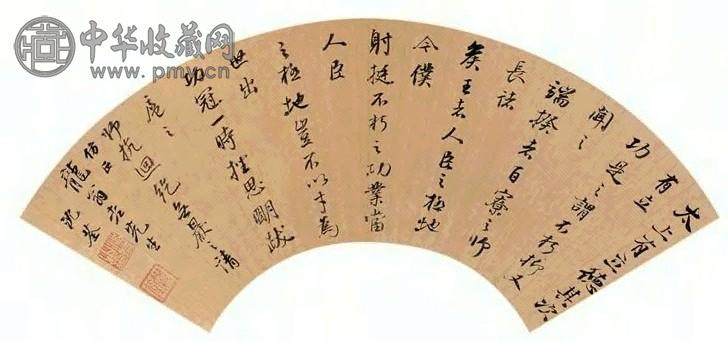 中华收藏网
www.pmy.cn
太上有立德其次
有立
功是之謂不朽抑又
聞之
端揆者百寮之師
長諸
矦王者人臣之極地
今僕
射挺不朽之功業當
人臣
之極地豈不以才為
世出
功冠一時挫思明跋
扈之
師抗迴紇無厭之請
老先生
龍